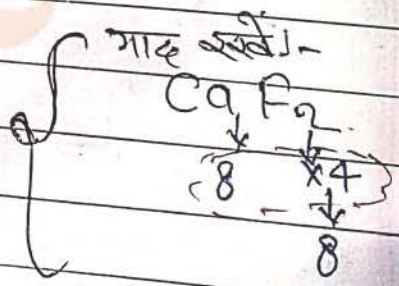 याद रखें।-
CaF2
8 x4
8